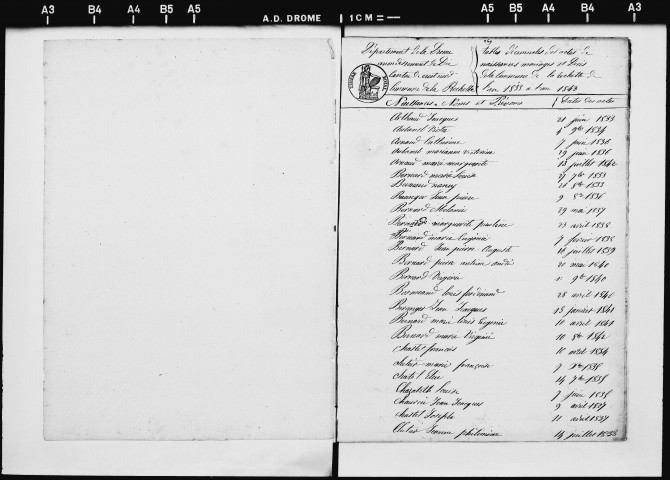 A3 B4 A4 B5 A5 A.D. DROME 1CM= A5 B5 A4 B4 A3
Département de la Drome
arrondissement de Die
Canton de
Commune de la Rochette
tables décennales des actes de
naissances mariages et Décès
de la Commune de la Rochette de
l'an 1833 a l'an 1843
Naissances. Noms et Prénoms Dates des actes
Jacques 21 juin 1833
9bre 1834
Arnaud Catherine 7 juin 1836
marianne victoirine 29 juin 1836
Arnaud marie marguerite 13 juillet 1842
Bernard marie Louise 27 7bre 1833
Bernard nancy 21 8bre 1833
Jean pierre 9 8bre 1836
Bernard Melanie 29 mai 1837
Bernard marguerite pauline 23 avril 1838
Bernard marie Eugénie 7 février 1838
Bernard Jean pierre Auguste 16 juillet 1839
Bernard pierre antoine andré 20 mai 1840
Bernard Virginie 9bre 1840
louis ferdinand 28 avril 1841
Jean Jacques 13 janvier 1841
Bernard marie Eugenie 10 avril 1841
Bernard marie Virginie 10 8bre 1842
françois 10 avril 1834
marie françoise 1835
Elie 14 7bre 1835
Louise 7 juin 1836
Jean Jacques 9 avril 1837
Joseph 11 avril 1837
Jeanne philomine 14 juillet 1838